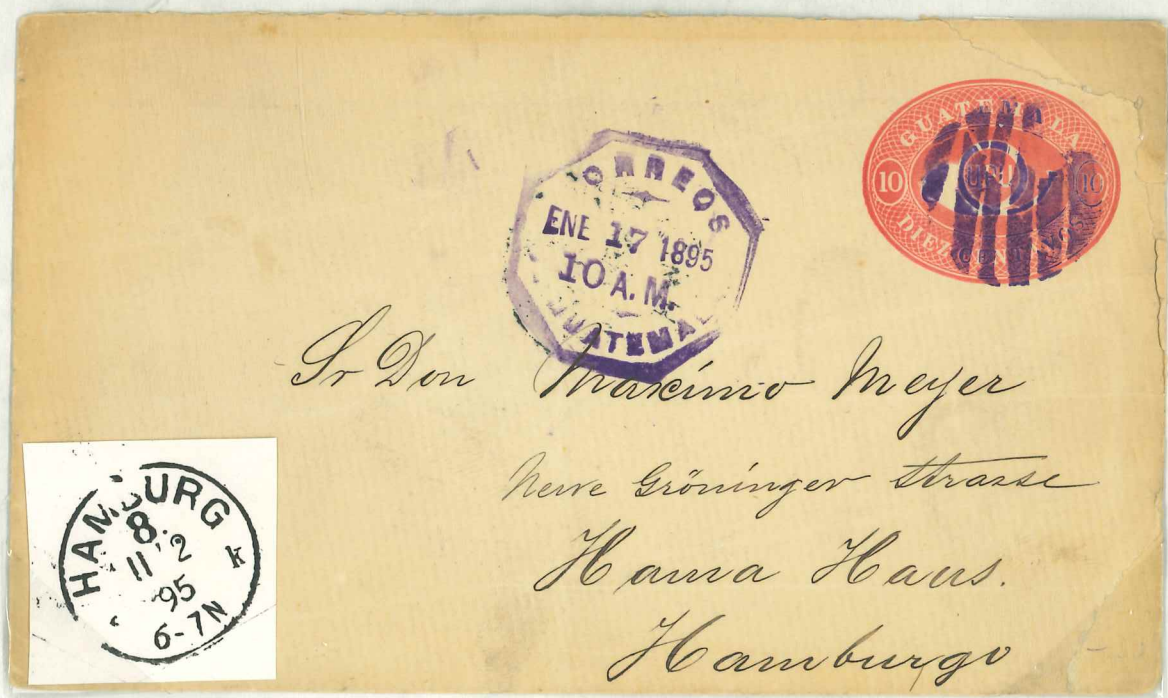 GUATEMALA
10 UPU 10
DIEZ CENTAVOS
CORREOS
ENE 17 1895
10 A.M.
GUATEMALA
Sr Don Maximo Meyer
Neue Gröninger Strasse
Hansa Haus.
Hamburgo
HAMBURG
8.
11 2
95
6-7N
k